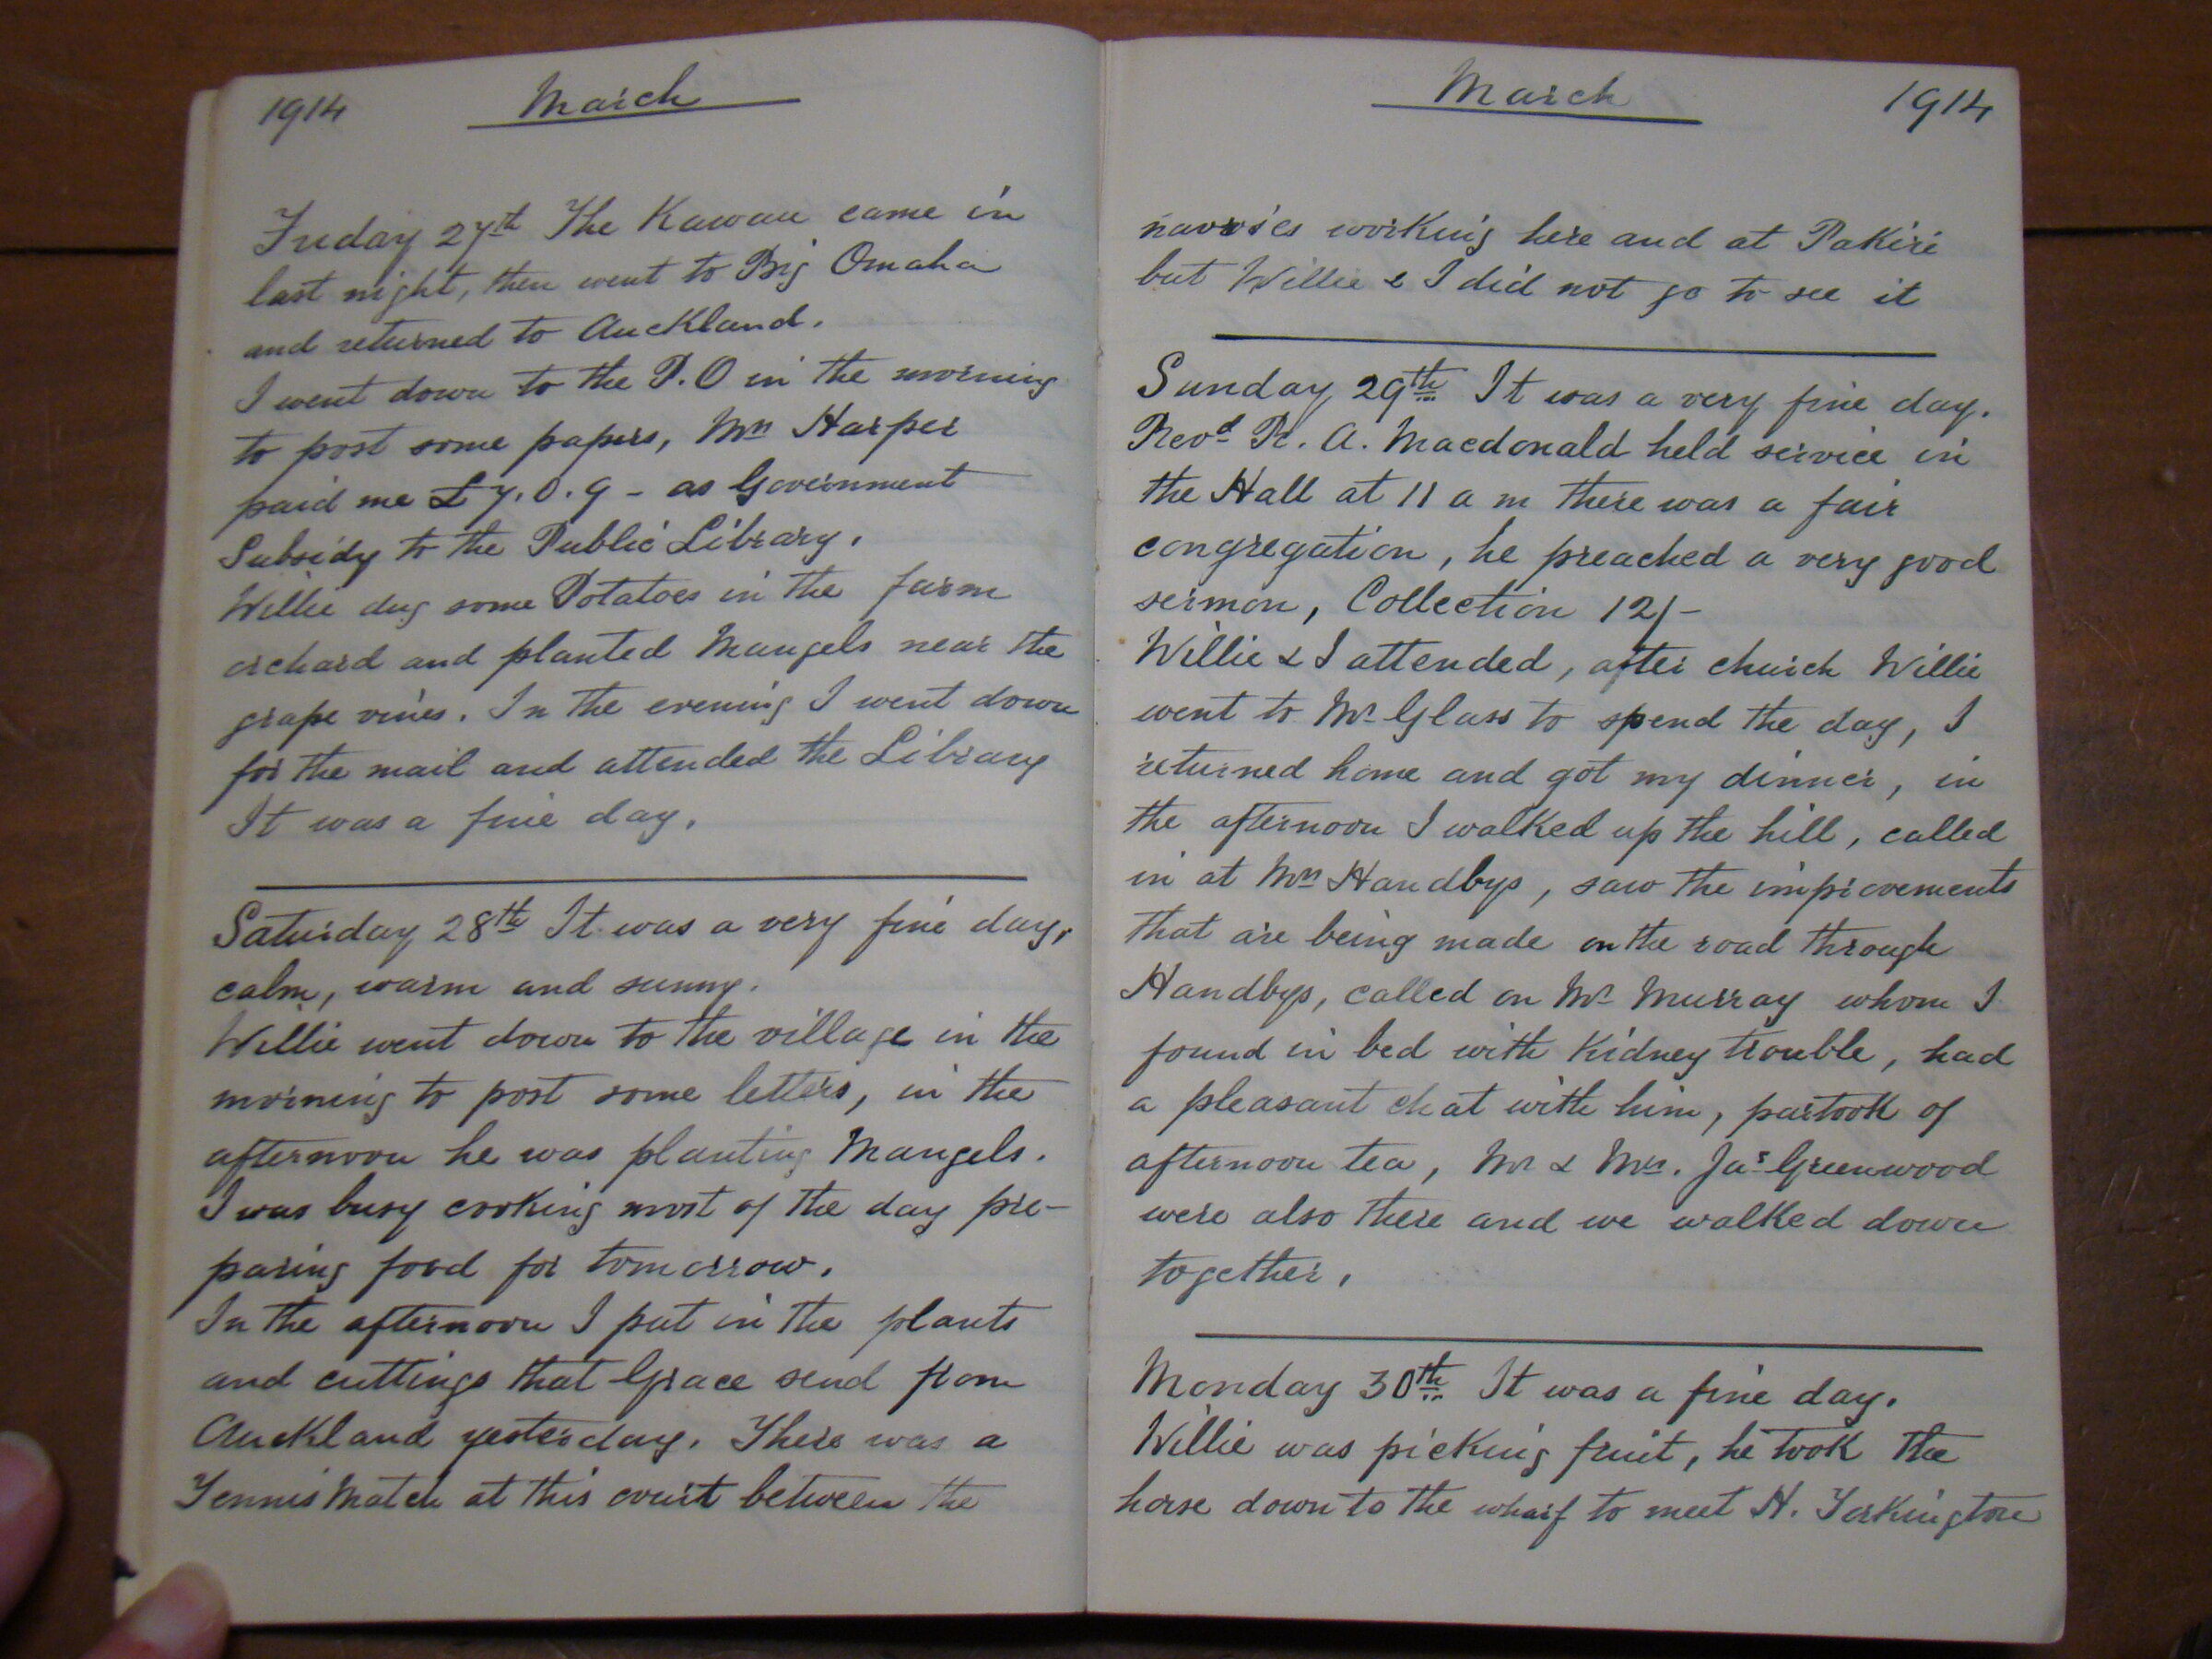 1914 March
Friday 27th The Kawau came in
last night, then went to Big Omaha
and returned to Auckland.
I went down to the P.O in the morning
to post some papers, Mrs Harper
paid me £7.0.9 - as Government
Subsidy to the Public Library.
Willie dug some Potatoes in the farm
orchard and planted Mangels near the
grape vines. In the evening I went down
for the mail and attended the Library
It was a fine day.
Saturday 28th It was a very fine day,
calm, warm and sunny.
Willie went down to the village in the
morning to post some letters, in the
afternoon he was planting Mangels.
I was busy cooking most of the day pre-
paring food for tomorrow.
In the afternoon I put in the plants
and cuttings that Grace send from
Auckland yesterday. There was a
Tennis Match at this court between the
March 1914
navvies working here and at Pakiri
but Willie & I did not go to see it
Sunday 29th It was a very fine day.
Revd R. A. Macdonald held service in
the Hall at 11 a m there was a fair
congregation, he preached a very good
sermon, Collection 12/-
Willie & I attended, after church Willie
went to Mr Glass to spend the day, I
returned home and got my dinner, in
the afternoon I walked up the hill, called
in at Mrs Handbys, saw the improvements
that are being made on the road through
Handbys, called on Mr Murray whom I
found in bed with Kidney trouble, had
a pleasant chat with him, partook of
afternoon tea, Mr & Mrs. Jas Greenwood
were also there and we walked down
together.
Monday 30th It was a fine day.
Willie was picking fruit, he took the
horse down to the wharf to meet H. Torkington